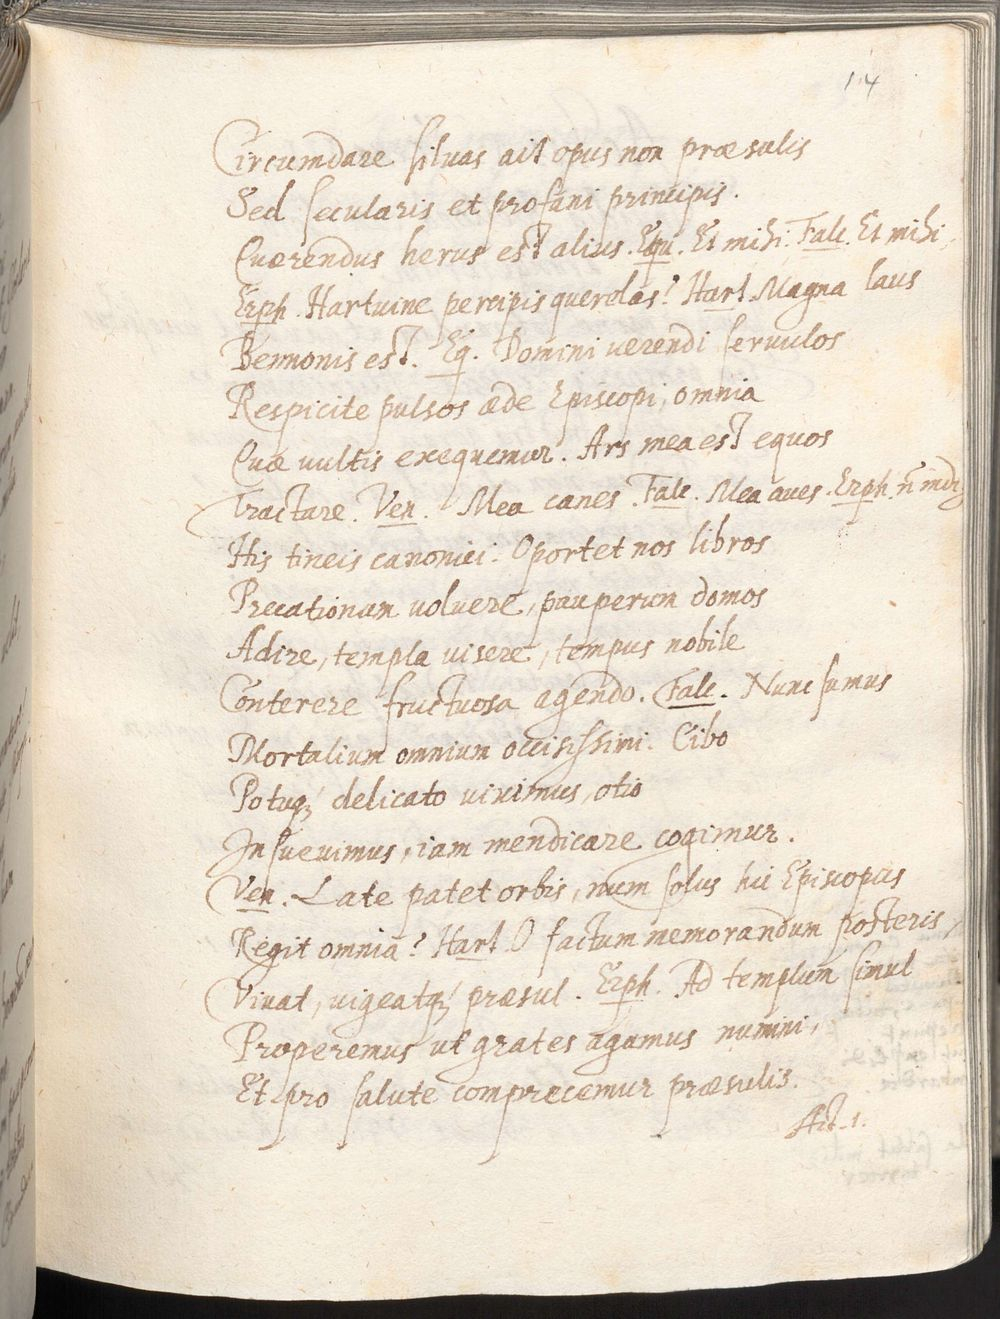 14
Circumdare siluas ait opus non præsulis
Sed secularis et profani principis.
Quærendus herus est alius. Equ. Et mihi. Falc. Et mihi,
Erph. Hartuine percipis querelas? Hart. Magna laus
Bennonis est. Eq. Domini uerendi seruulos
Respicite pulsos æde Episcopi, omnia
Quæ uultis exequemur. Ars mea est equos
Tractare. Ven. Mea canes. Falc. Mea aues. Erph. ñ indiꝫ
His tineis canonici. Oportet nos libros
Precationam uoluere, pauperum domos
Adire, templa uisere, tempus nobile
Conterere fructuosa agendo. Falc. Nunc sumus
Mortalium omnium occisissimi. Cibo
Potuqꝫ delicato uiximus, otio
Insueuimus, iam mendicare cogimur.
Ven. Late patet orbis, num solus hic Episcopus
Regit omnia? Hart. O factum memorandum posteris,
Viuat, uigeatqꝫ præsul. Erph. Ad templum simul
Properemus ut grates agamus numini,
Et pro salute comprecemur præsulis.
Act. 1.